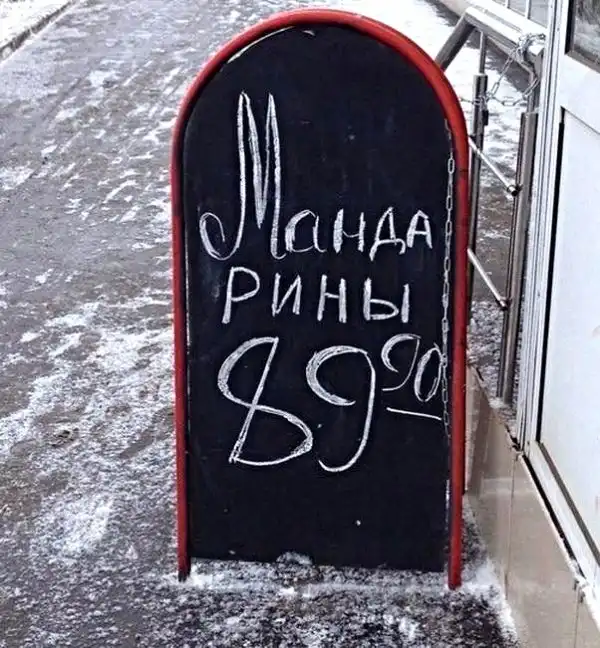 Манда
рины
89 90